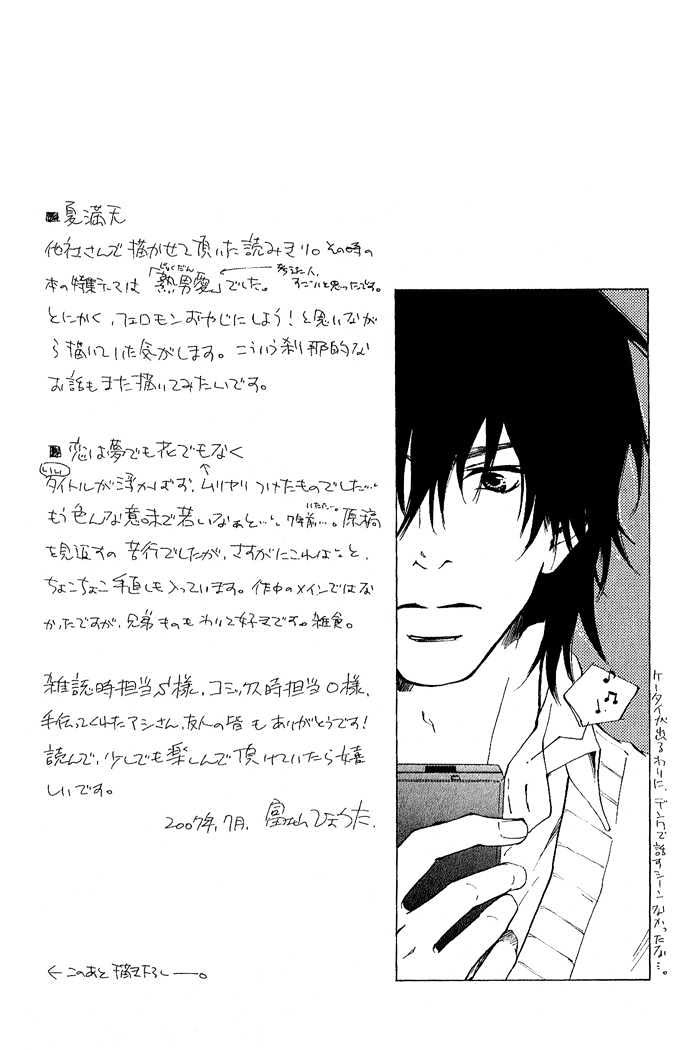 ■夏満天
他社さんで描かせて頂いた読みきり。その時の
本の特集テーマは「熱男愛」でした。
ねつだん
← 考えた人、
すごいと思ったです。
とにかく、フェロモンおやじにしよう!と思いなが
ら描いていた気がします。こういう刹那的な
お話もまた描いてみたいです。
■恋は夢でも花でもなく
いい
タイトルが浮かばず、ムリヤリつけたものでした…
もう色んな意味で若いなぁと…、7年前…。原稿
を見返すの苦行でしたが、さすがにこれはなと、
ちょこちょこ手直しも入っています。作中のメインではな
かったですが、兄弟ものもわりと好きです。雑食。
雑誌時担当S様、コミックス時担当O様、
手伝ってくれたアシさん、友人の皆もありがとうです!
読んで、少しでも楽しんで頂けていたら嬉
しいです。
2007年、7月。富士山ひょうた.
← このあと描き下ろしー。
ケータイが出るわりに、デンワで話すシーンなかったな…。